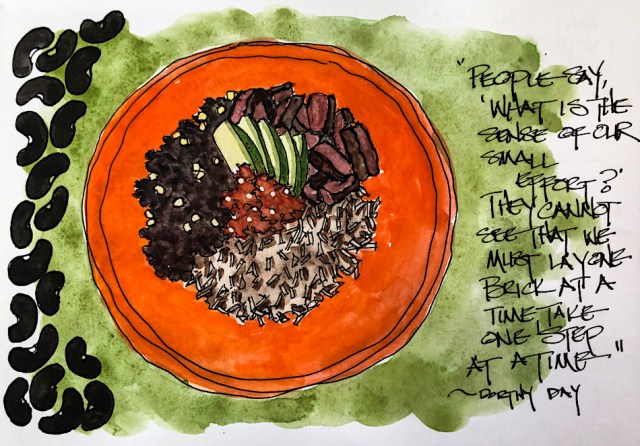 "PEOPLE SAY,
'WHAT IS THE
SENSE OF OUR
SMALL
EFFORT?'
THEY CANNOT
SEE THAT WE
MUST LAY ONE
BRICK AT A
TIME, TAKE
ONE STEP
AT A TIME."
~DORTHY DAY